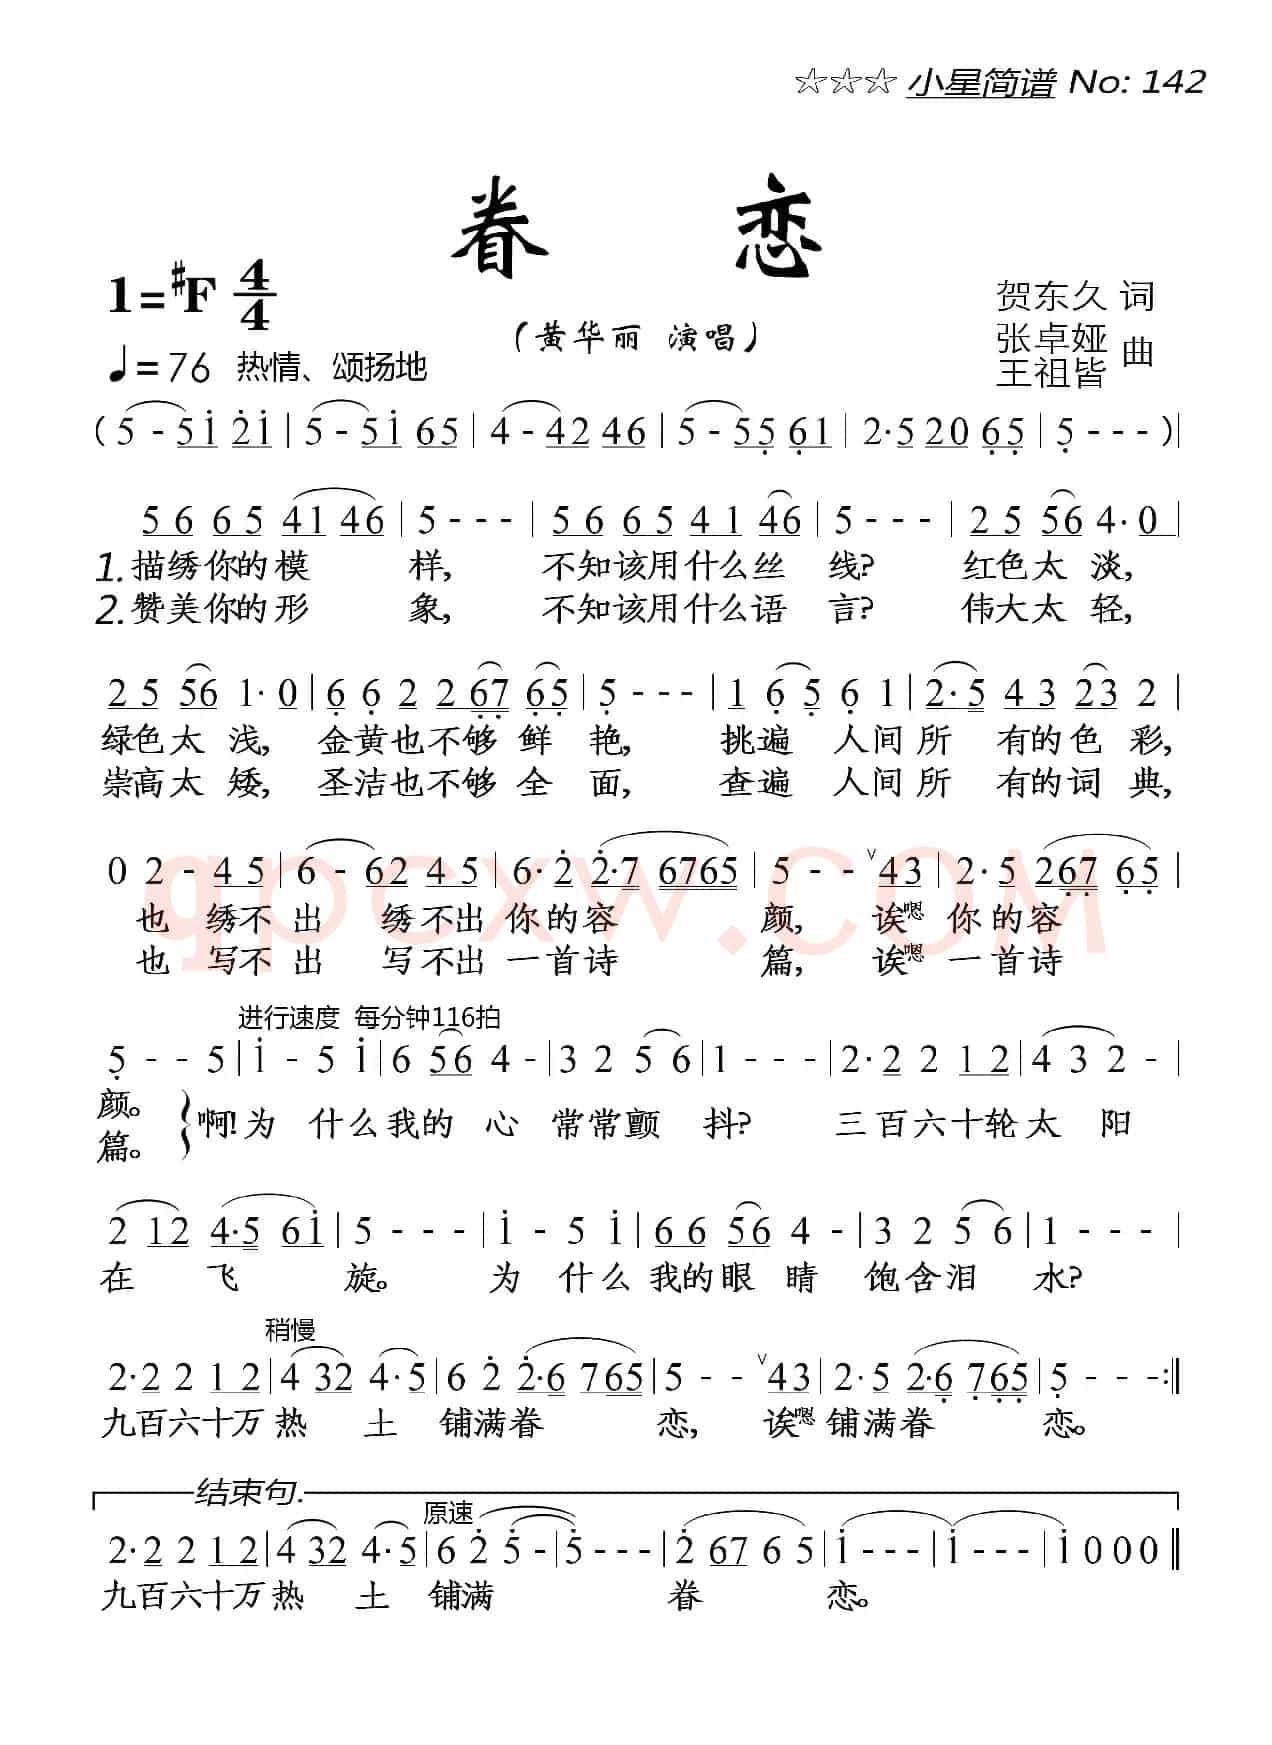 ☆☆☆ 小星简谱 No: 142
眷 恋
1=#F 4/4
(黄华丽 演唱)
贺东久 词
张卓娅
王祖皆 曲
♩=76 热情、颂扬地
(5 - 5 1 2 1 | 5 - 5 1 6 5 | 4 - 4 2 4 6 | 5 - 5 5 6 1 | 2·5 2 0 6 5 | 5 - - - )|
5 6 6 5 4 1 4 6 | 5 - - - | 5 6 6 5 4 1 4 6 | 5 - - - | 2 5 5 6 4· 0 |
1.描绣你的模 样, 不知该用什么丝 线? 红色太 淡,
2.赞美你的形 象, 不知该用什么语 言? 伟大太 轻,
2 5 5 6 1· 0 | 6 6 2 2 6 7 6 5 | 5 - - - | 1 6 5 6 1 | 2·5 4 3 2 3 2 |
绿色太 浅, 金黄也不够 鲜 艳, 挑遍 人间所 有的色 彩,
崇高太 矮, 圣洁也不够 全 面, 查遍 人间所 有的词 典,
0 2 - 4 5 | 6 - 6 2 4 5 | 6· 2 2·7 6 7 6 5 | 5 - - ∨ 4 3 | 2·5 2 6 7 6 5 |
也 绣不 出 绣不出 你的容 颜, 诶嗯 你的容
也 写不 出 写不出 一首诗 篇, 诶嗯 一首诗
进行速度 每分钟116拍
5 - - 5 | 1 - 5 1 | 6 5 6 4 - | 3 2 5 6 | 1 - - - | 2·2 2 1 2 | 4 3 2 - |
颜。
啊!为 什么我的 心 常常颤 抖? 三百六十轮太 阳
篇。
2 1 2 4·5 6 1 | 5 - - - | 1 - 5 1 | 6 6 5 6 4 - | 3 2 5 6 | 1 - - - |
在 飞 旋。 为 什么 我的眼 睛 饱含泪 水?
稍慢
2·2 2 1 2 | 4 3 2 4·5 | 6 2 2·6 7 6 5 | 5 - - ∨ 4 3 | 2·5 2·6 7 6 5 | 5 - - - :‖
九百六十万 热 土 铺满眷 恋, 诶嗯 铺满眷 恋。
结束句.
原速
2·2 2 1 2 | 4 3 2 4·5 | 6 2 5 - | 5 - - - | 2 6 7 6 5 | 1 - - - | 1 - - - | 1 0 0 0 ‖
九百六十万 热 土 铺满 眷 恋。
qpcxw.COM